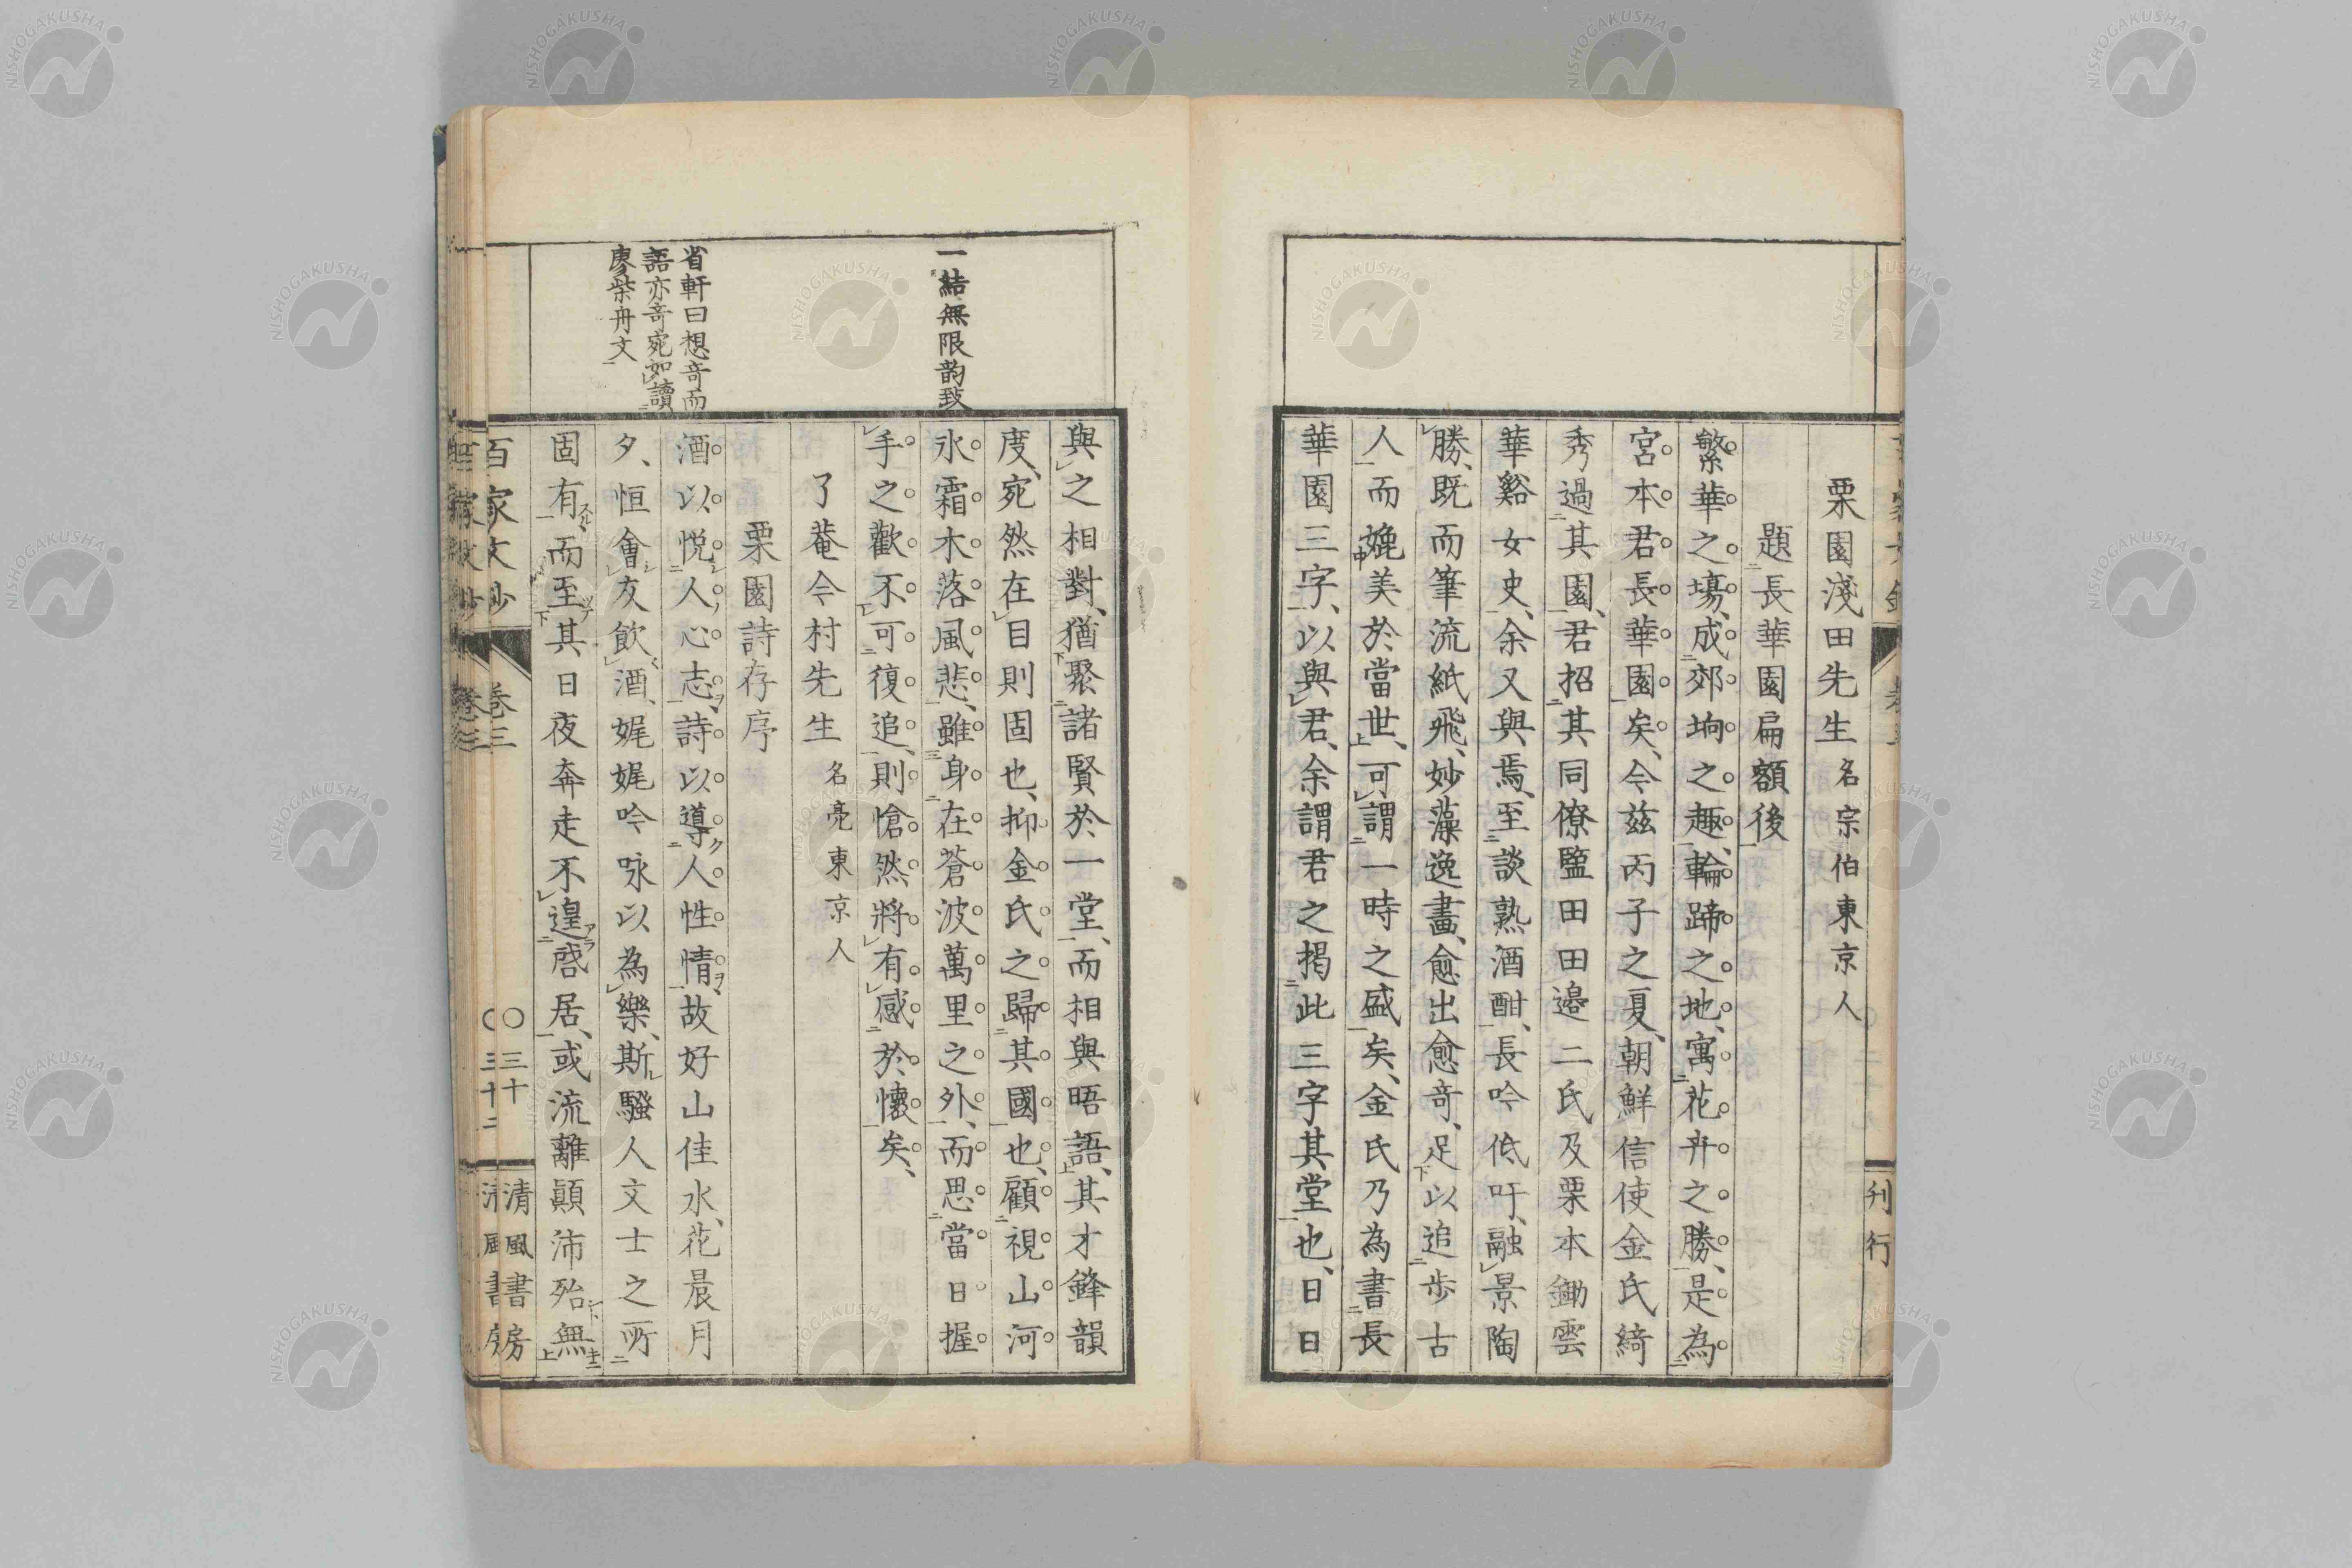 栗園淺田先生 名宗伯東京人
題長華園扁額後
繁華之場、成郊坰之趣、輪蹄之地、寓花卉之勝、是為
宮本君長華園矣、今茲丙子之夏、朝鮮信使金氏綺
秀過其園、君招其同僚鹽田田邉二氏及栗本鋤雲
華谿女史、余又與焉、至談熟酒酣、長吟低吁、融景陶
勝、既而筆流紙飛、妙藻逸畫、愈出愈奇、足以追步古
人而媲美於當世、可謂一時之盛矣、金氏乃為書長
華園三字、以與君、余謂君之揭此三字其堂也、日日
刊行
一結無限韵致
省軒曰想奇而
語亦奇宛如讀
廖柴舟文
與之相對、猶聚諸賢於一堂、而相與晤語、其才鋒韻
度、宛然在目則固也、抑金氏之歸其國也、顧視山河
氷霜木落風悲、雖身在蒼波萬里之外、而思當日握
手之歡不可復追、則愴然將有感於懷矣、
了菴今村先生 名亮東京人
栗園詩存序
酒以悅人心志、詩以導人性情、故好山佳水、花晨月
夕、恒會友飲酒、娓娓吟咏以為樂、斯騷人文士之所
固有而至其日夜奔走不遑啓居、或流離顛沛殆無
百家文鈔 卷三 〇三十 清風書房
卷三 三十二
NISHOGAKUSHA